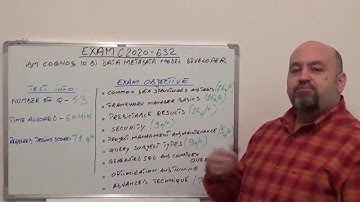 EXAM C2020-632
IBM COGNOS 10 BI DATA METADATA MODEL DEVELOPER
TEST INFO
NUMBER OF Q - 53
TIME ALLOWED - 60 MIN
REQUIRED PASSING SCORE: 71 %
EXAM OBJECTIVE
- COMMON DATA STRUCTURES AND TRAPS (16%)
- FRAMEWORK MANAGER BASICS (16%)
- PREDICTABLE RESULTS (16%)
- SECURITY (9%)
- PROJECT MANAGMENT AND MAINTENANCE (5%)
- QUERY SUBJECT TYPES (9%)
- GENERATED SQL AND COMPLEX QUER
- OPTIMIZATION AND TUNING
- ADVANCED TECHNIQUE (7